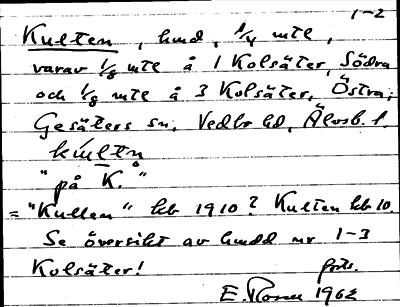 1-2
Kulten, hmd, 1/4 mtl,
varav 1/8 mtl å 1 Kolsäter, Södra
och 1/8 mtl å 3 Kolsäter, Östra,
Gesäters sn, Vedbo hd, Älvsb. l.
kultn
"på K."
= "Kullen" kb 1910? Kulten kb 10.
Se översikt av hmdd nr 1-3
Kolsäter!
forts.
E. 1962